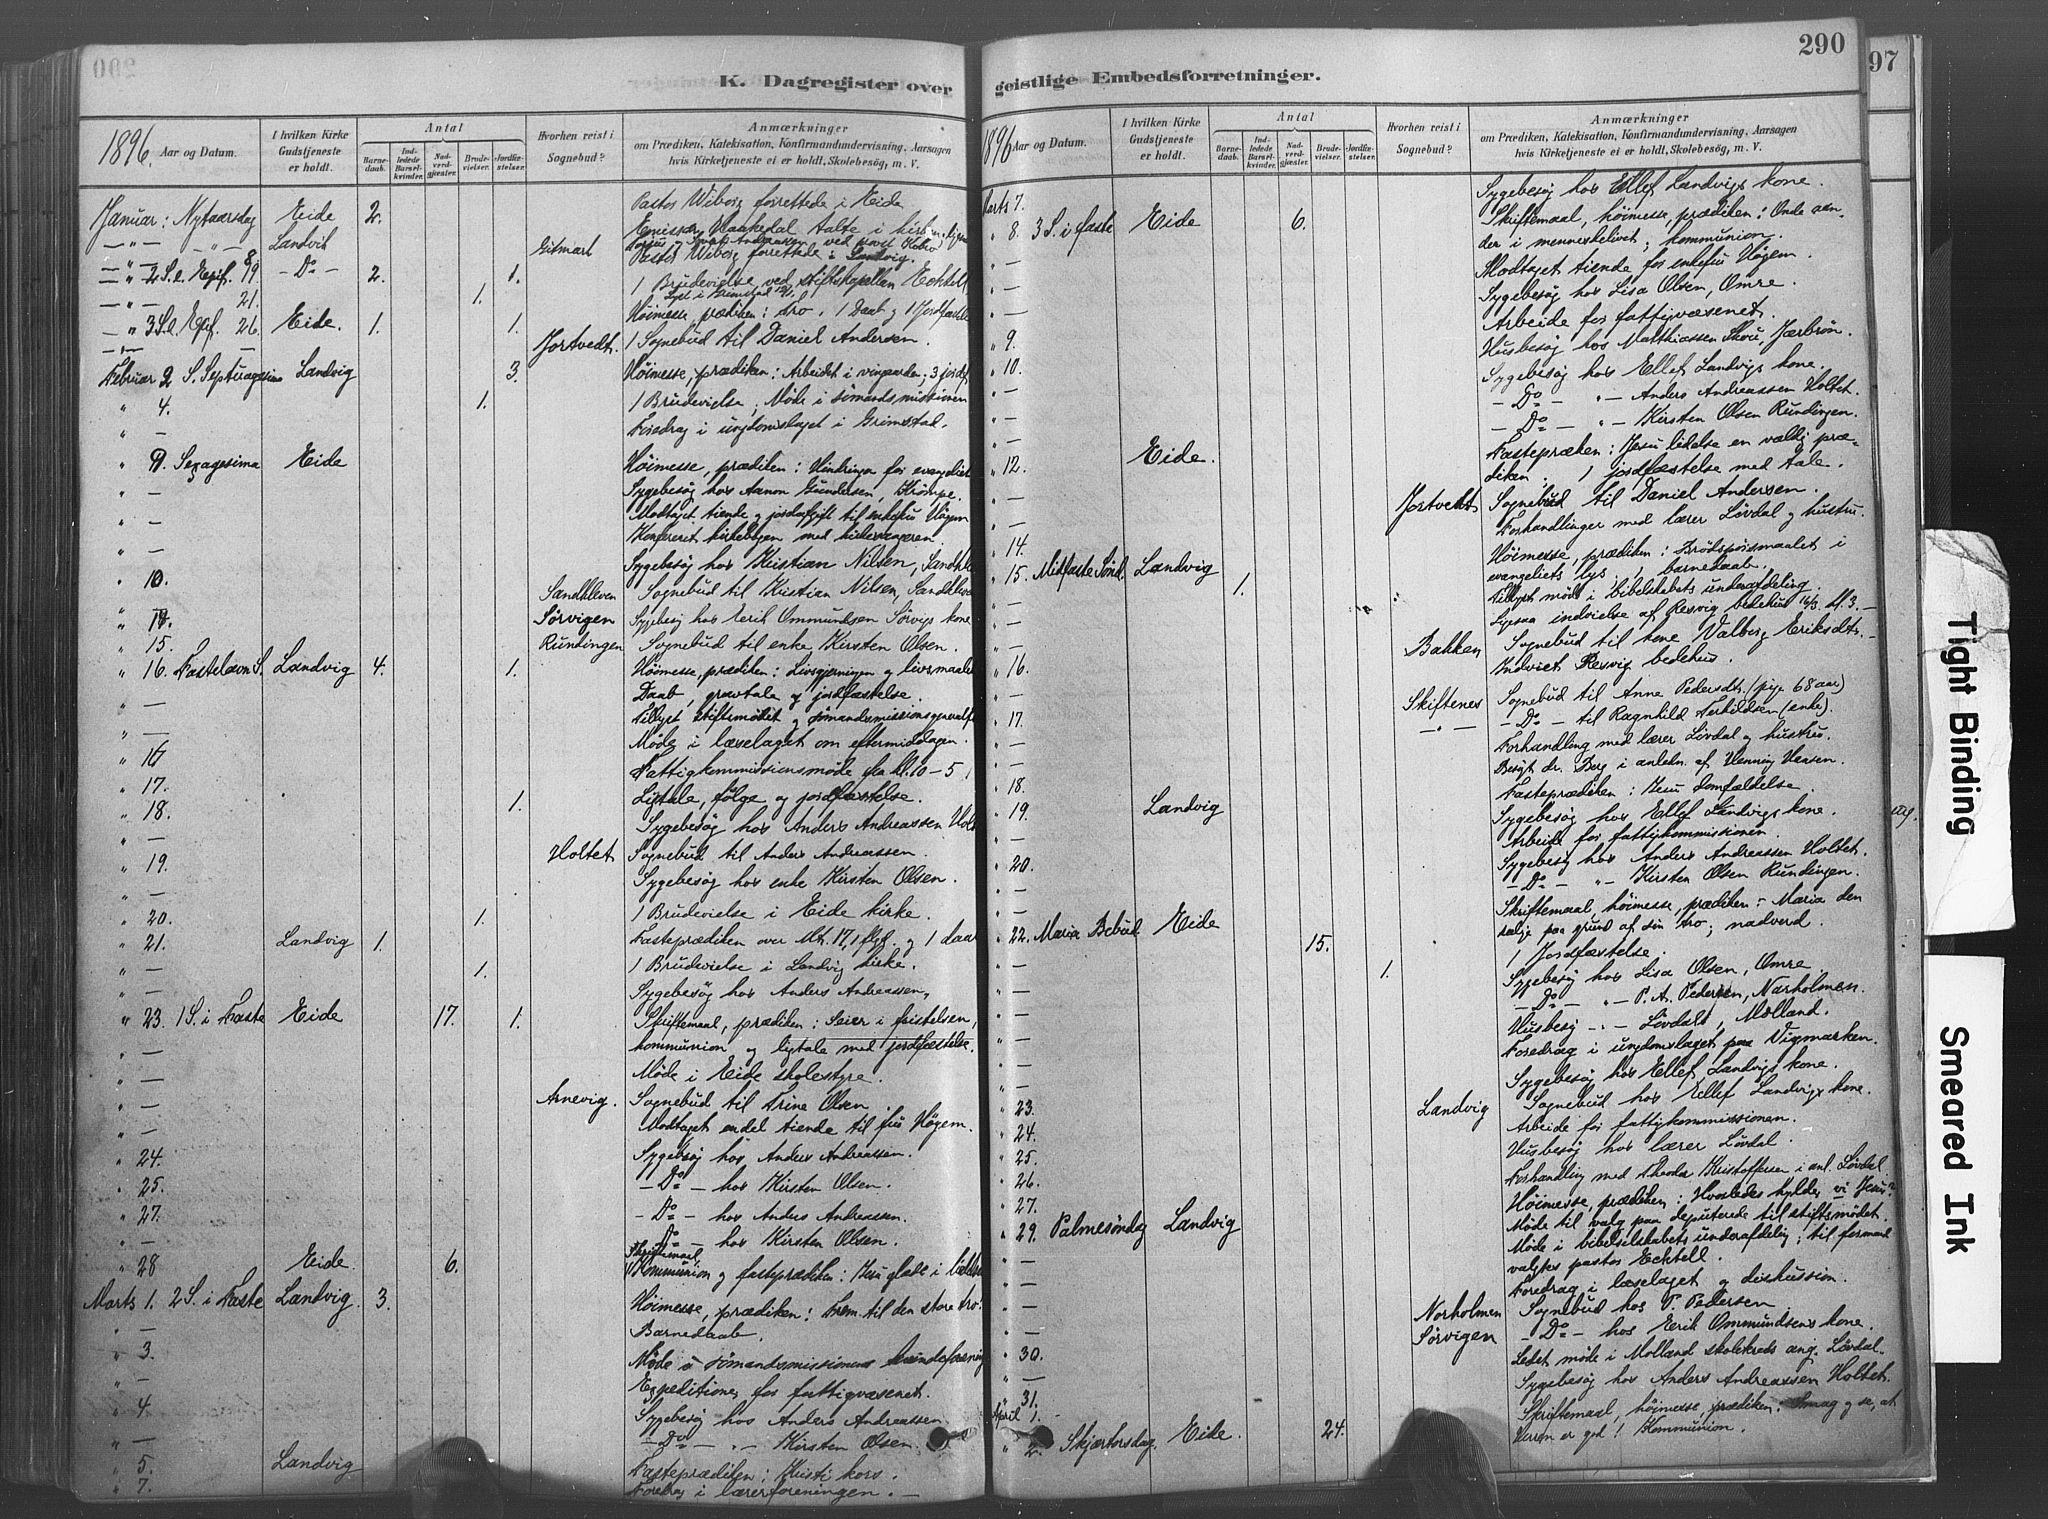 290
97
K. Dagregister over geistlige Embedsforretninger.
1896. Aar og Datum. I hvilken Kirke Gudstjeneste er holdt. Antal Barnedaab. Indledede Barselkvinder. Nadverdgjæster. Brudevielser. Jordfæstelser. Hvorhen reist i Sognebud? Anmærkninger om Prædiken, Katekisation, Konfirmandundervisning, Aarsagen hvis Kirketjeneste ei er holdt, Skolebesøg, m. V.
Januar: Nytaarsdag Eide 2. Pastor Wiborg forrettede i Eide
Landvik Gitmark
Pastor Wiborg forrettede i Landvig.
2 S. e. Epif. 19. Do 2. 1.
21. 1. 1 Brudevielse ved stiftskapellan Ecktell
3 S. e. Epif. 26. Eide. 1. 1. Høimesse, prædiken: tro. 1 Daab og 1 Jordfæstelse
Jortvedt. 1 Sognebud til Daniel Andersen.
Februar 2 S. Septuagesima Landvig 3. Høimesse, prædiken: Arbeidet i vingaarden; 3 jordf.
" 4. 1. 1 Brudevielse, Møde i sømandsmissionen
Foredrag i ungdomslaget i Grimstad.
" 9. Sexagesima Eide Høimesse, prædiken: Hindringer for evangeliet
Sygebesøg hos Aanon Gundersen, Krømpe.
Modtaget tiende og jordafgift til enkefru Høgem
Konfereret kirkebogen med kirkesangeren.
Sygebesøg hos Kristian Nilsen, Sandkl
" 10. Sandkleven Sognebud til Kristian Nilsen, Sandkleven
" 14. Sørvigen Sygebesøg hos Eerik Ommundsen Sørvigs kone
" 15. Rundingen Sognebud til enke Kirsten Olsen.
" 16. Fastelavn S. Landvig 4. 1. Høimesse, prædiken: Livsgjerningen og livsmaalet
Daab, gravtale og jordfæstelse.
Tillyst stiftsmødet og sømandsmissionsgeneralf
Møde i læselaget om eftermiddagen.
" 16 Fattigkommissionsmøde fra kl. 10 - 5
" 17. 1. Ligtale, følge og jordfæstelse.
" 18. Sygebesøg hos Anders Andreassen Holt
Holtet Sognebud til Anders Andreassen.
" 19. Sygebesøg hos enke Kirsten Olsen.
" 20. 1. 1 Brudevielse i Eide kirke.
" 21. Landvig 1. Fasteprædiken over Mt. 17,1 flgd. og 1 daab
1. 1 Brudevielse i Landvig kirke.
Sygebesøg hos Anders Andreassen,
" 23. 1 S. i Faste Eide 17. 1. Skriftemaal, prædiken: Seier i fristelsen,
kommunion og ligtale med jordfæstelse.
Møde i Eide skolestyre.
Arnevig. Sognebud til Trine Olsen
Modtaget endel tiende til fru Høgem.
" 24. Sygebesøg hos Anders Andreassen.
" 25. - Do - hos Kirsten Olsen.
" 27. - Do - hos Anders Andreassen.
- Do - hos Kirsten Olsen.
" 28 Eide. 6. Skriftemaal
Kommunion og fasteprædiken: Jesu glæde i lidelse
Marts 1. 2 S. i Faste Landvig. 3. Høimesse, prædiken: Frem til den store tro!
Barnedaab.
" 3. Møde i sømandsmissionens kvindeforening
Expeditioner for fattigvæsenet.
" 4 Sygebesøg hos Anders Andreassen
- Do - " - Kirsten Olsen.
" 5. Landvig Fasteprædiken: Kristi kors.
" 7. Foredrag i lærerforeningen.
1896 Aar og Datum. I hvilken Kirke Gudstjeneste er holdt. Antal Barnedaab. Indledede Barselkvinder. Nadverdgjæster. Brudevielser. Jordfæstelser. Hvorhen reist i Sognebud? Anmærkninger om Prædiken, Katekisation, Konfirmandundervisning, Aarsagen hvis Kirketjeneste ei er holdt, Skolebesøg, m. V.
Marts 7. Sygebesøg hos Ellef Landvigs kone.
" 8. 3 S. i faste Eide 6. Skriftemaal, høimesse, prædiken: Onde aander i menneskelivet; kommunion.
Modtaget tiende for enkefru Høgem.
Sygebesøg hos Lisa Olsen, Omre.
Arbeide for fattigvæsenet.
" 9. Husbesøg hos Matthiassen Skou, Jærbrøn.
" 10. Sygebesøg hos Ellef Landvigs kone.
- Do - " - Anders Andreassen Holtet.
- Do - " - Kirsten Olsen Rundingen.
" 12. Eide. Fastepræken: Jesu lidelse en vældig prædiken; 1 jordfæstelse med tale.
Jortvedt Sognebud til Daniel Andersen.
" 14. Forhandlinger med lærer Løvdal og hustru.
" 15. Midfaste Sønd. Landvig 1. Høimesse, prædiken: Brødspørsmaalet i
evangeliets lys, barnedaab.
Tillyst møde i bibelskabets underafdeling.
Ligesaa indvielse af Resvig bedehus 16/3 kl. 3.
Bakken Sognebud til kone Valborg Eriksdtr.
" 16. Indviet Resvig bedehus.
Skiftenes Sognebud til Anne Pedersdtr. (pige 68 aar)
" 17. - Do - til Ragnhild Terkildsen (enke).
Forhandling med lærer Løvdal og hustru.
Besøgt dr. Berg i anledn. af Henning Hansen.
" 18. Fasteprædiken: Jesu domfældelse.
" 19. Landvig Sygebesøg hos Ellef Landvigs kone.
Arbeide for fattigkommissionen.
" 20. Sygebesøg hos Anders Andreassen Holtet.
- Do - " - Kirsten Olsen Rundingen.
" 22. Maria Bebud. Eide 15. Skriftemaal, høimesse, prædiken - Maria den
salige paa grund af sin tro; nadverd.
1. 1 Jordfæstelse.
Sygebesøg hos Lisa Olsen, Omre
- Do - " - P. A. Pedersen, Narholmen.
Husbesøg - " - Løvdals, Molland.
Foredrag i ungdomslaget paa Vigmarken.
Sygebesøg hos Ellef Landvigs kone.
" 23. Landvig Sognebud hos Ellef Landvigs kone.
" 24. Arbeide for fattigkommissionen.
" 25. Husbesøg hos lærer Løvdal.
" 26. Forhandling med Theodor Kristoffersen i anl. Løvdal
" 27. Høimesse, prædiken: Hvorledes hylder vi Jesus?
" 29. Palmesøndag Landvig Møde til valg paa deputerede til stiftsmødet.
Møde i bibelselskabets underafdeling; til formand
valgtes pastor Ecktell.
Foredrag i læselaget og diskussion.
Norholmen Sognebud hos P. Pedersen
Sørvigen - Do - hos Erik Ommundsens kone.
" 30. Ledet møde i Molland skolekreds ang. Løvdal.
Sygebesøg hos Anders Andreassen Holtet.
" 31.
April 1. Skriftemaal, høimesse, prædiken: Smag og se, at
" 2. Skjærtorsdag. Eide. 24. Herren er god! Kommunion.
Tight Binding
Smeared Ink